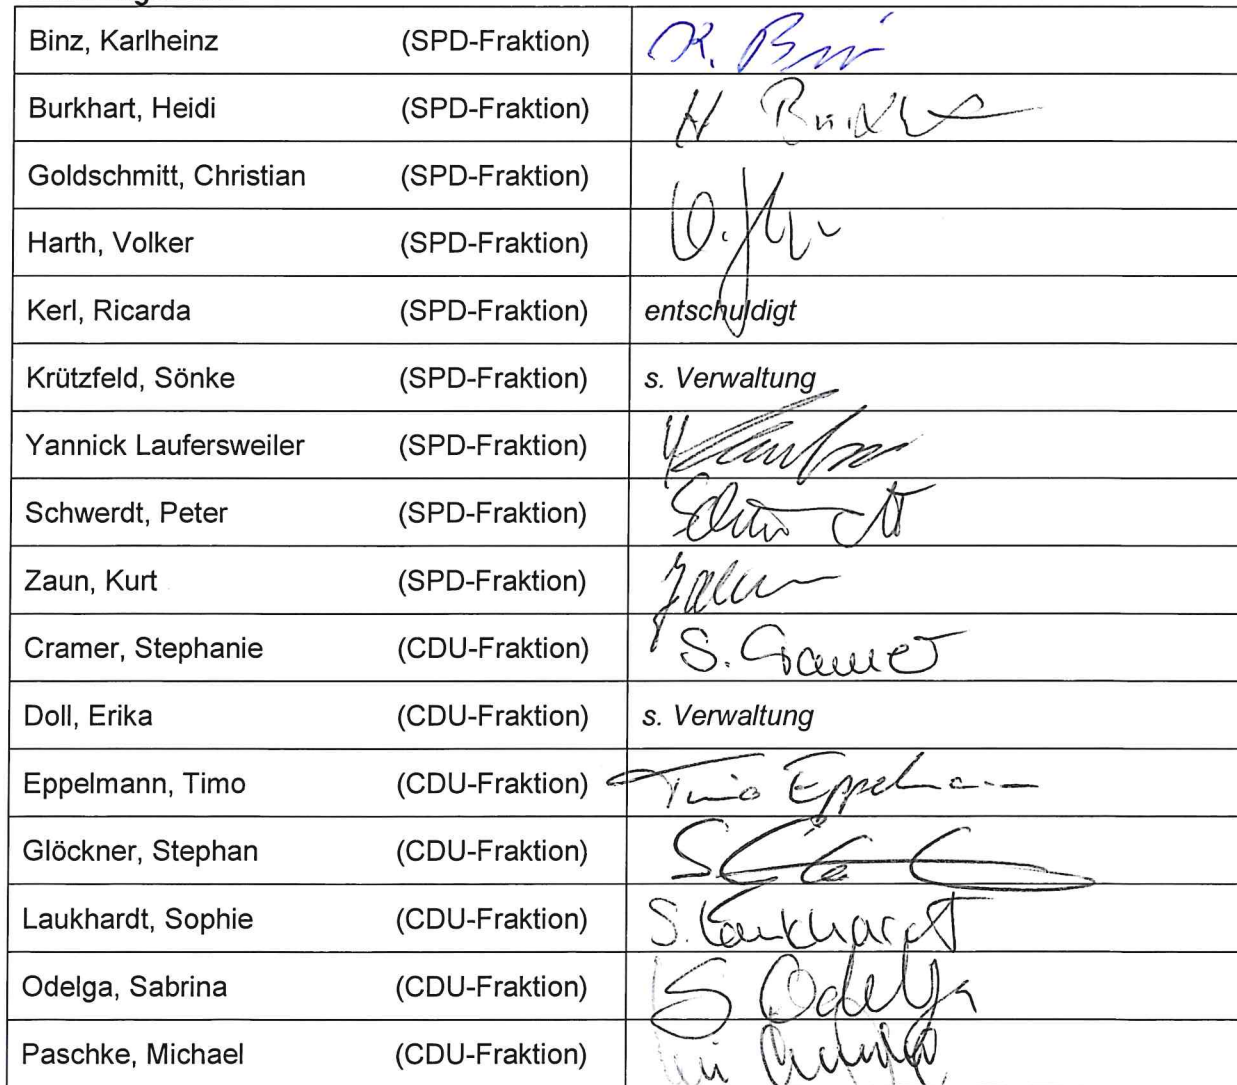 Binz, Karlheinz (SPD-Fraktion) K. Bin
Burkhart, Heidi (SPD-Fraktion) H
Goldschmitt, Christian (SPD-Fraktion)
Harth, Volker (SPD-Fraktion)
Kerl, Ricarda (SPD-Fraktion) entschuldigt
Krützfeld, Sönke (SPD-Fraktion) s. Verwaltung
Yannick Laufersweiler (SPD-Fraktion)
Schwerdt, Peter (SPD-Fraktion)
Zaun, Kurt (SPD-Fraktion)
Cramer, Stephanie (CDU-Fraktion) S. Cramer
Doll, Erika (CDU-Fraktion) s. Verwaltung
Eppelmann, Timo (CDU-Fraktion) Timo Eppelmann
Glöckner, Stephan (CDU-Fraktion)
Laukhardt, Sophie (CDU-Fraktion) S. Laukhardt
Odelga, Sabrina (CDU-Fraktion) S Odelga
Paschke, Michael (CDU-Fraktion)